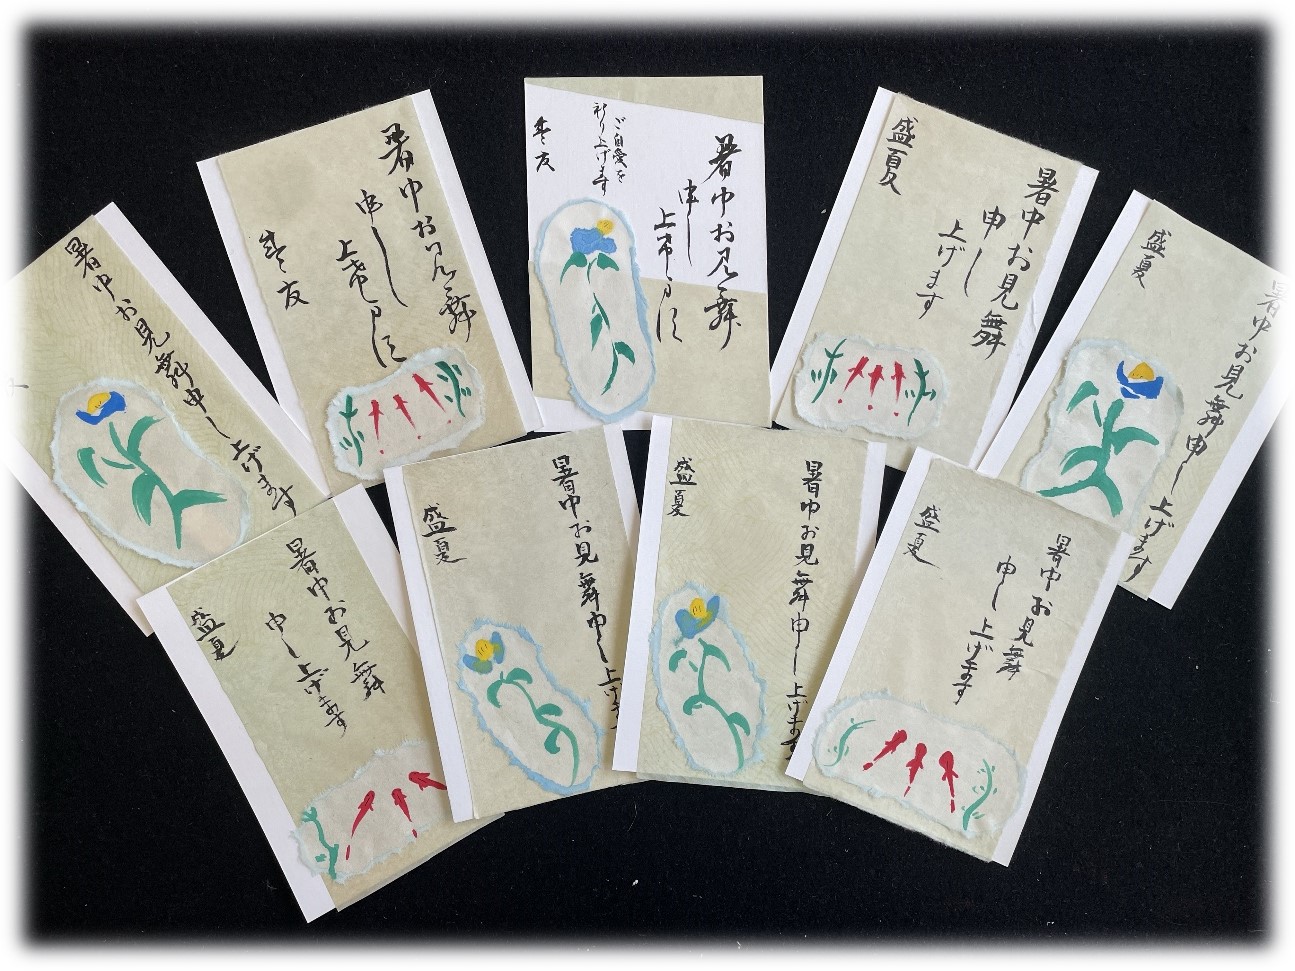 暑中お見舞申し上げます
暑中お見舞
申し
上
友
暑中お見舞
申し
上
ご自愛を
祈り上げます
友
暑中お見舞
申し
上げます
盛夏
暑中お見舞申し上げます
盛夏
暑中お見舞
申し上げます
盛夏
暑中お見舞申し上げ
盛夏
暑中お見舞申し上げます
盛夏
暑中お見舞
申し上げます
盛夏